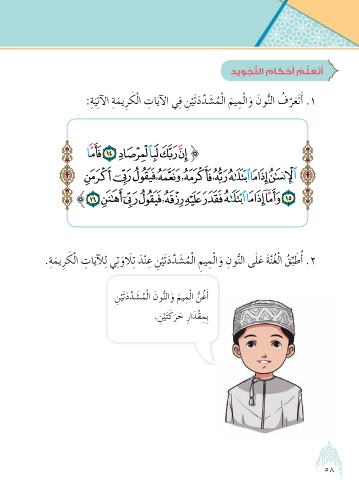 أتعلّم أحكام التجويد
١. أَتَعَرَّفُ النُّونَ وَالْمِيمَ الْمُشَدَّدَتَيْنِ فِي الْآيَاتِ الْكَرِيمَةِ الْآتِيَةِ:
﴿ إِنَّ رَبَّكَ لَبِٱلْمِرْصَادِ ١٤ فَأَمَّا
ٱلْإِنسَٰنُ إِذَا مَا ٱبْتَلَىٰهُ رَبُّهُۥ فَأَكْرَمَهُۥ وَنَعَّمَهُۥ فَيَقُولُ رَبِّىٓ أَكْرَمَنِ
١٥ وَأَمَّآ إِذَا مَا ٱبْتَلَىٰهُ فَقَدَرَ عَلَيْهِ رِزْقَهُۥ فَيَقُولُ رَبِّىٓ أَهَٰنَنِ ١٦ ﴾
٢. أُطَبِّقُ الْغُنَّةَ عَلَى النُّونِ وَالْمِيمِ الْمُشَدَّدَتَيْنِ عِنْدَ تِلَاوَتِي لِلْآيَاتِ الْكَرِيمَةِ.
أَغُنُّ الْمِيمَ وَالنُّونَ الْمُشَدَّدَتَيْنِ
بِمِقْدَارِ حَرَكَتَيْنِ.
٥٨